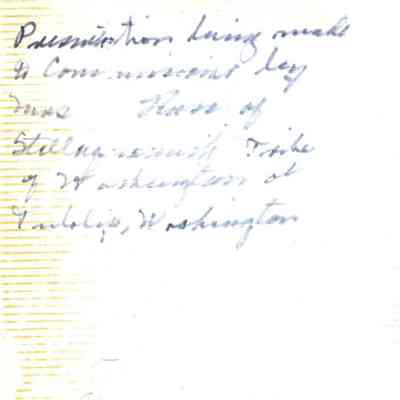 Presentation being made
to Commissioner by
Mrs of
Stillaguamish Tribe
of Washington at
Tulalip, Washington